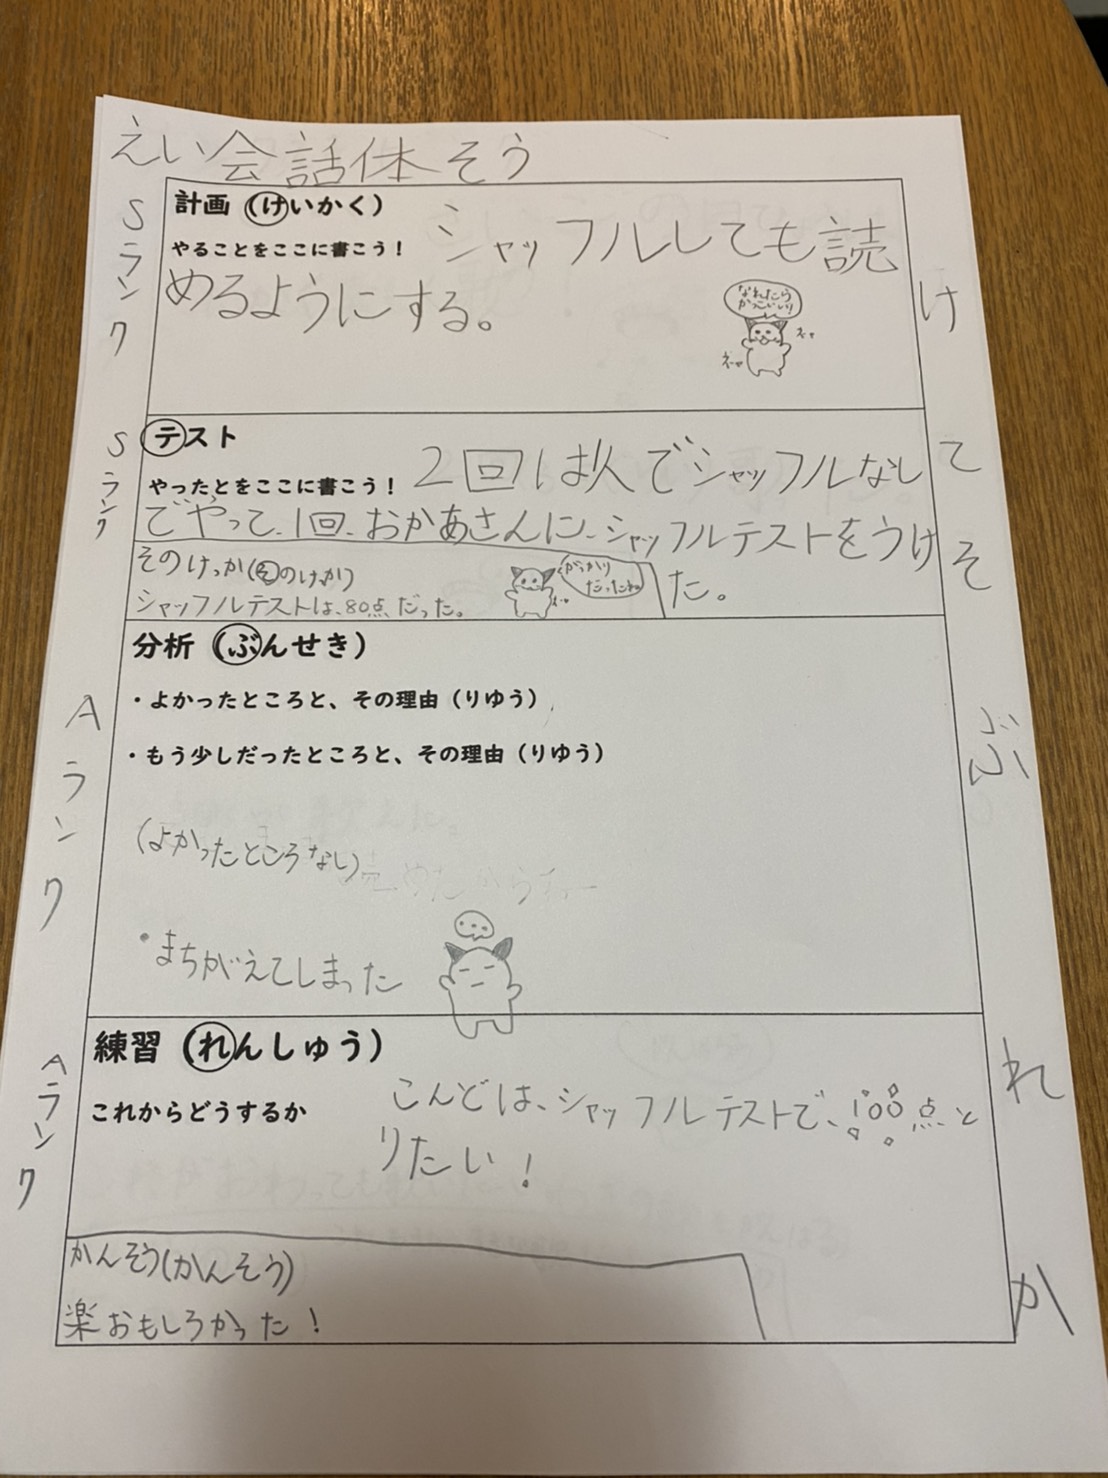 えい会話体そう
Sランク
計画（けいかく）
やることをここに書こう！
シャッフルしても読
めるようにする。
なれたら
かっこいい！
け
Sランク
テスト
やったとをここに書こう！
2回は人でシャッフルなし
でやって、1回、おかあさんに、シャッフルテストをうけ
た。
て
そのけっか(そのけっか)
シャッフルテストは、80点だった。
がっかり
だったね。
そ
Aランク
分析（ぶんせき）
・よかったところと、その理由（りゆう）
・もう少しだったところと、その理由（りゆう）
ぶ
(よかったところなし)
・まちがえてしまった
Aランク
練習（れんしゅう）
これからどうするか
こんどは、シャッフルテストで、100点と
りたい！
れ
かんそう(かんそう)
楽おもしろかった！
か